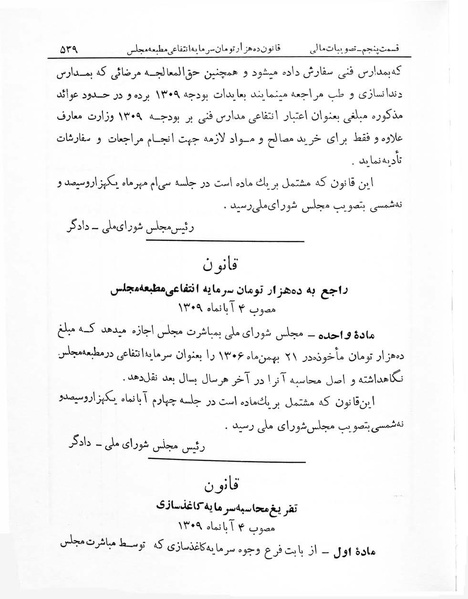 قسمت پنجم - تصویبات مالی قانون ده هزار تومان سرمایه انتفاعی مطبعه مجلس ۵۳۹
که بمدارس فنی سفارش داده میشود و همچنین حق‌المعالجه مرضائی که بمدارس
دندانسازی و طب مراجعه مینمایند بعایدات بودجه ۱۳۰۹ برده و در حدود عوائد
مذکوره مبلغی بعنوان اعتبار انتفاعی مدارس فنی بر بودجه ۱۳۰۹ وزارت معارف
علاوه و فقط برای خرید مصالح و مواد لازمه جهت انجام مراجعات و سفارشات
تأدیه نماید .
این قانون که مشتمل بریک ماده است در جلسه سی‌ام مهرماه یکهزاروسیصد و
نه شمسی بتصویب مجلس شورای ملی رسید .
رئیس مجلس شورای ملی - دادگر
قانون
راجع به ده هزار تومان سرمایه انتفاعی مطبعه مجلس
مصوب ۴ آبانماه ۱۳۰۹
مادهٔ واحده - مجلس شورای ملی بمباشرت مجلس اجازه میدهد که مبلغ
ده هزار تومان مأخوذه در ۲۱ بهمن‌ماه ۱۳۰۶ را بعنوان سرمایه انتفاعی در مطبعه مجلس
نگاهداشته و اصل محاسبه آنرا در آخر هر سال بسال بعد نقل دهد .
این قانون که مشتمل بریک ماده است در جلسه چهارم آبانماه یکهزاروسیصدو
نه شمسی بتصویب مجلس شورای ملی رسید .
رئیس مجلس شورای ملی - دادگر
قانون
تفریغ محاسبه سرمایه کاغذسازی
مصوب ۴ آبانماه ۱۳۰۹
مادهٔ اول - از بابت فرع وجوه سرمایه کاغذسازی که توسط مباشرت مجلس